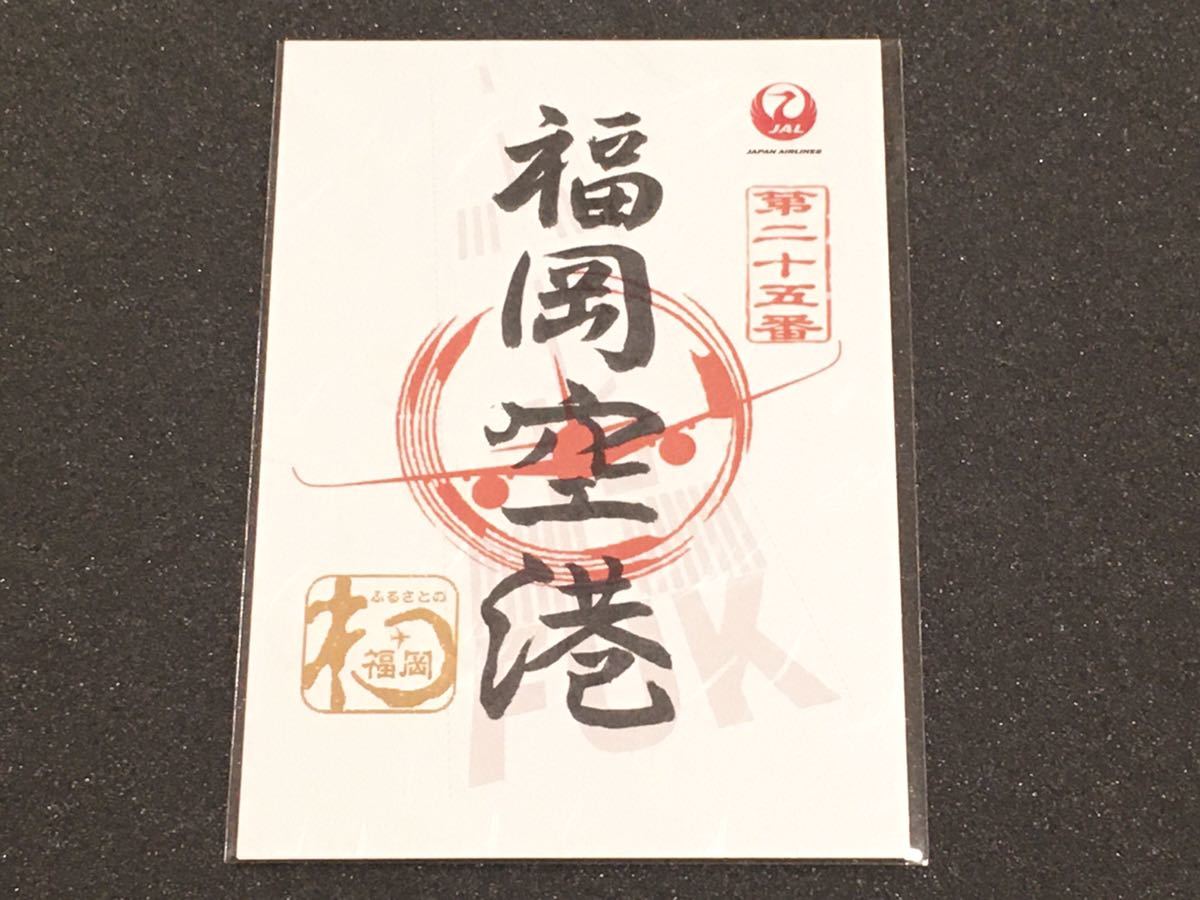 福岡空港
JAL
JAPAN AIRLINES
第二十五番
ふるさとの
福岡
FUK